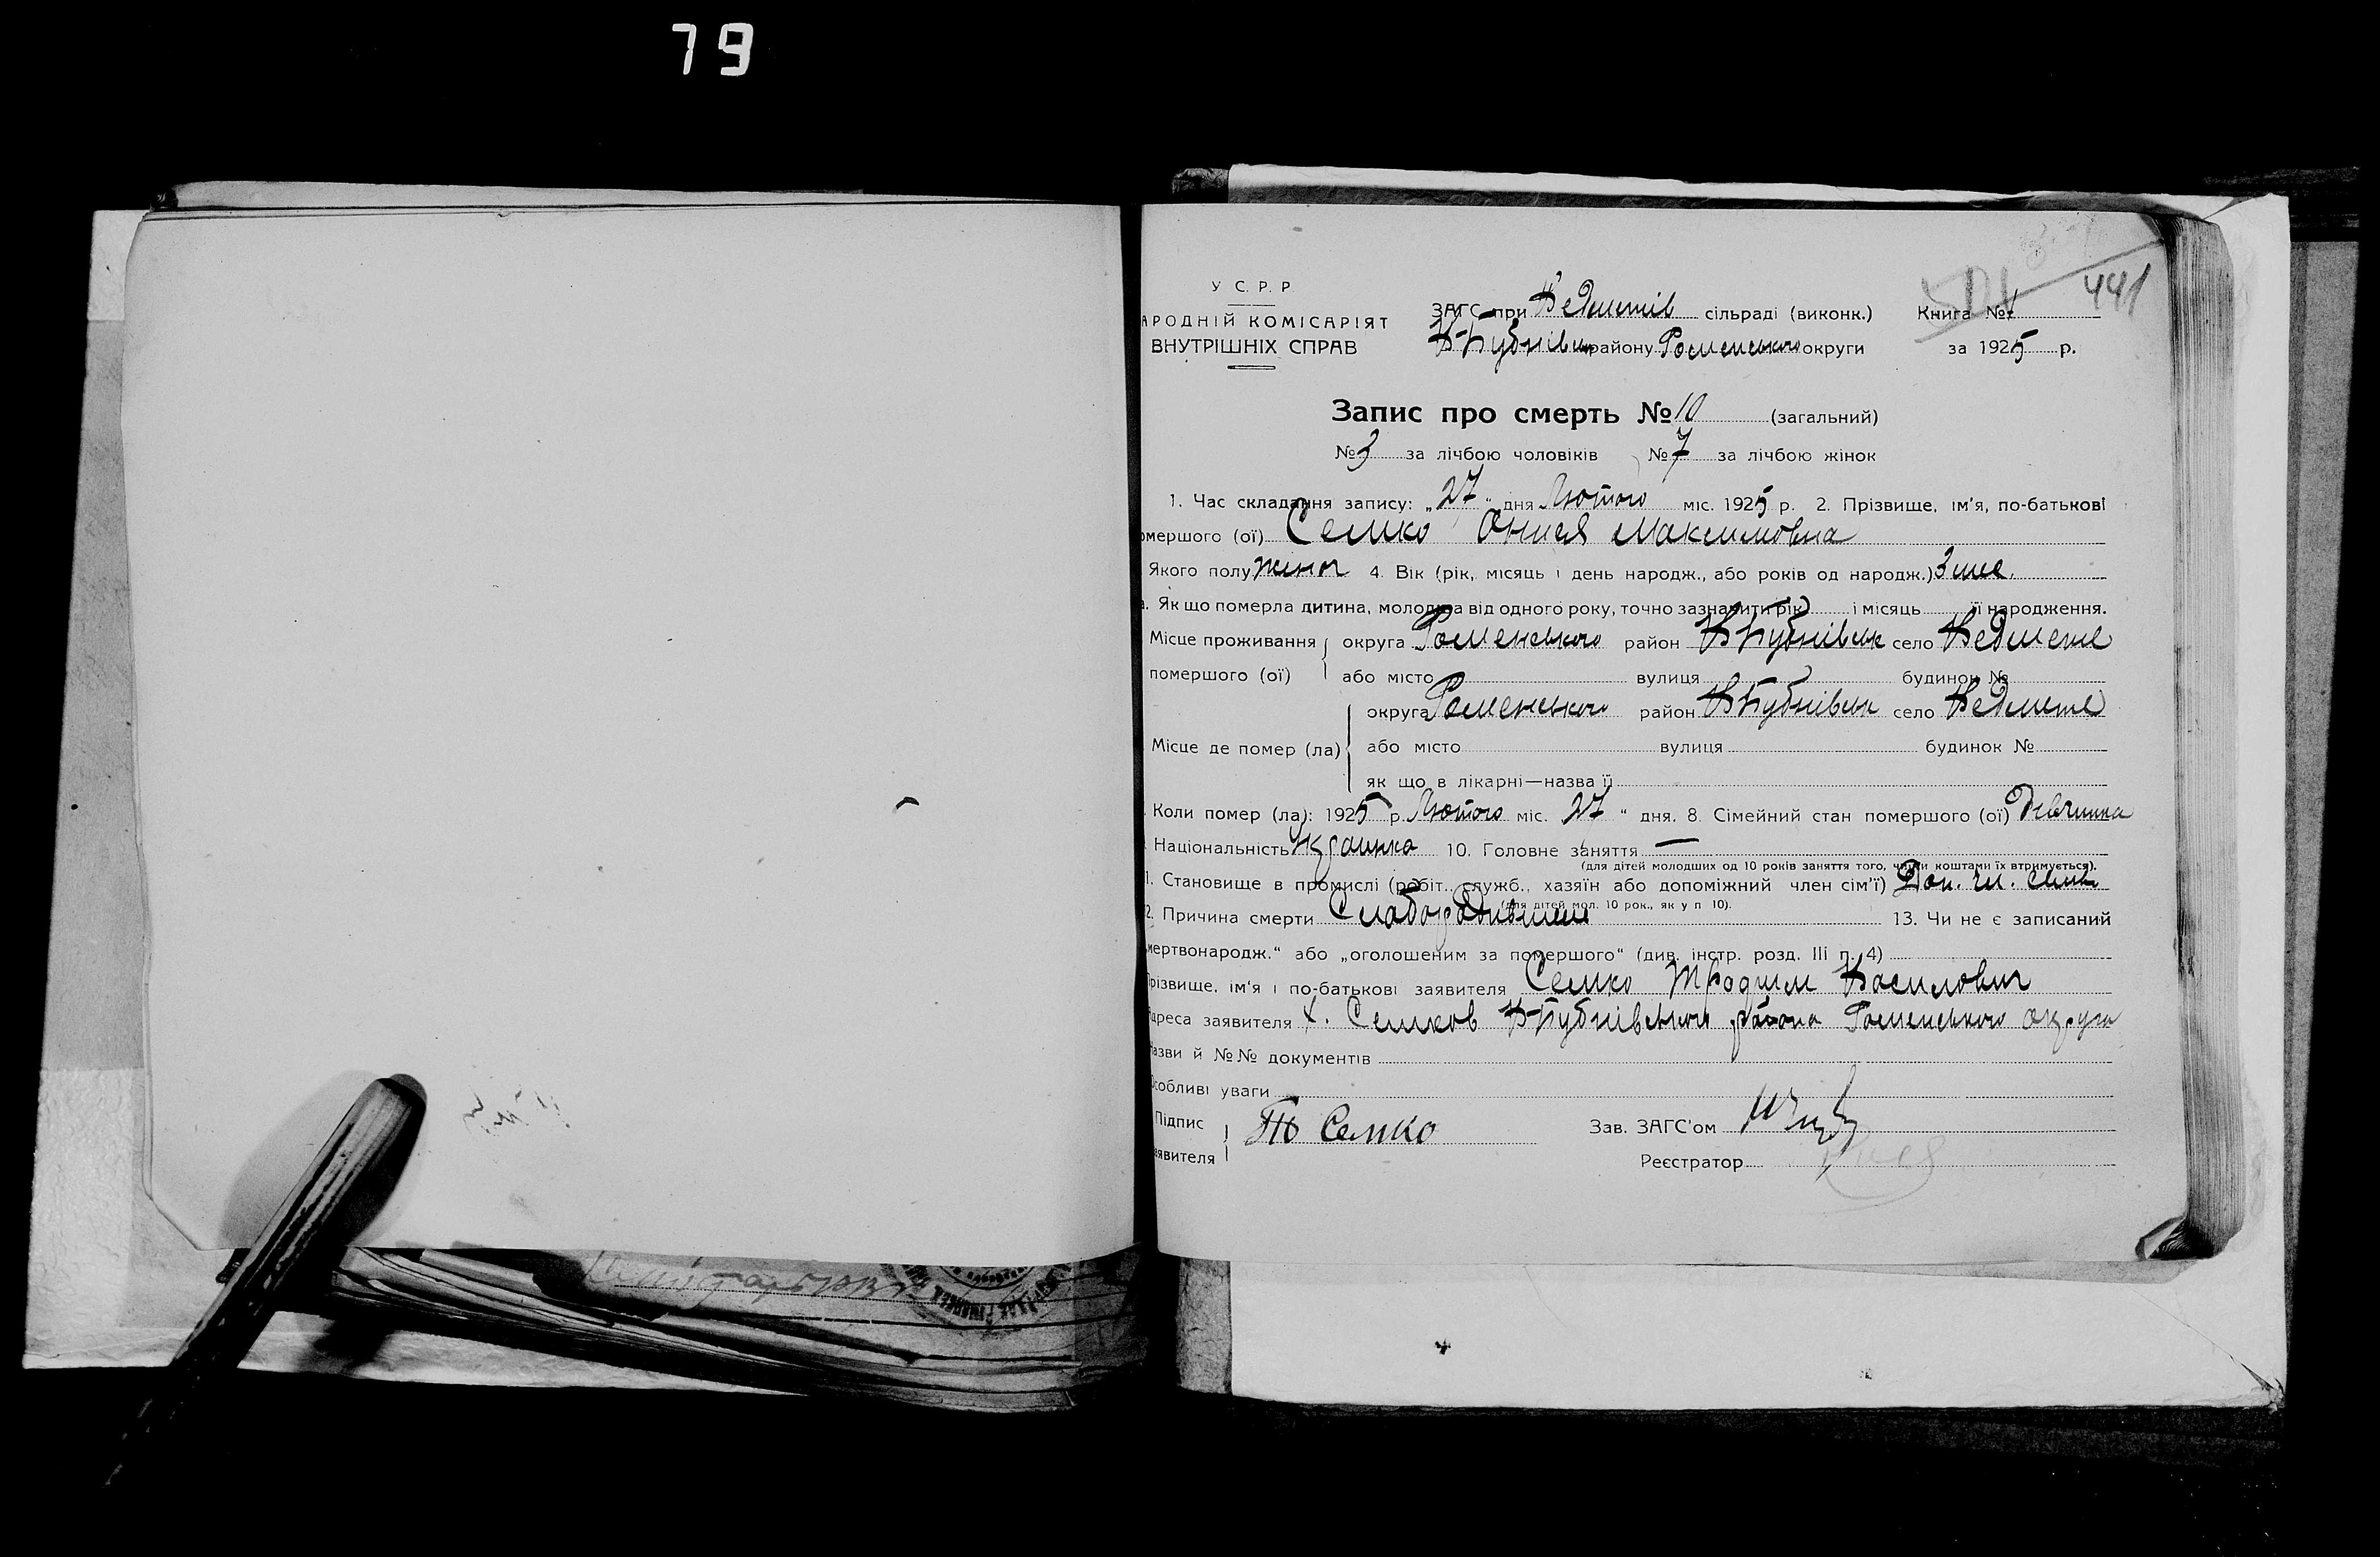 79
441
У С. Р. Р
АРОДНІЙ КОМІСАРІЯТ
ВНУТРІШНІХ СПРАВ
ЗАГС при Ведметів сільраді (виконк.) Книга №
В-Бубнівськ району Роменського округи за 1925 р.
Запис про смерть № 10 (загальний)
№ 3 за лічбою чоловіків № 7 за лічбою жінок
1. Час складання запису: „27“ дня Лютого міс. 1925 р. 2. Прізвище, ім'я, по-батькові
омершого (ої) Семко Онися Максимовна
Якого полу жіноч 4. Вік (рік, місяць і день народж., або років од народж.) 3 ме.
а. Як що померла дитина, молодша від одного року, точно зазначити рік і місяць її народження.
Місце проживання округа Роменського район В-Бубнівськ село Ведмеже
помершого (ої) або місто вулиця будинок №
округа Роменського район В-Бубнівськ село Ведмеже
Місце де помер (ла) або місто вулиця будинок №
як що в лікарні—назва її
Коли помер (ла): 1925 р. Лютого міс. 27 “ дня. 8. Сімейний стан помершого (ої) Дівчинка
Національність Українка 10. Головне заняття —
(для дітей молодших од 10 років заняття того, чиїми коштами їх втримується).
1. Становище в промислі (робіт., служб., хазяїн або допоміжний член сім'ї) Доп. чл. сім'ї
(для дітей мол. 10 рок., як у п 10).
2. Причина смерти 13. Чи не є записаний
мертвонародж.“ або „оголошеним за помершого“ (див. інстр. розд. III п. 4)
Прізвище, ім'я і по-батькові заявителя Семко Василович
Адреса заявителя х. Семков В-Бубнівського района Роменського округа
Назви й №№ документів
Особливі уваги
Підпис
аявителя Семко Зав. ЗАГС'ом
Реєстратор